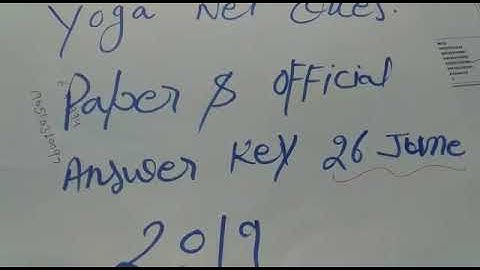 Yoga Net Ques.
Paper & official
Answer Key 26 June
2019